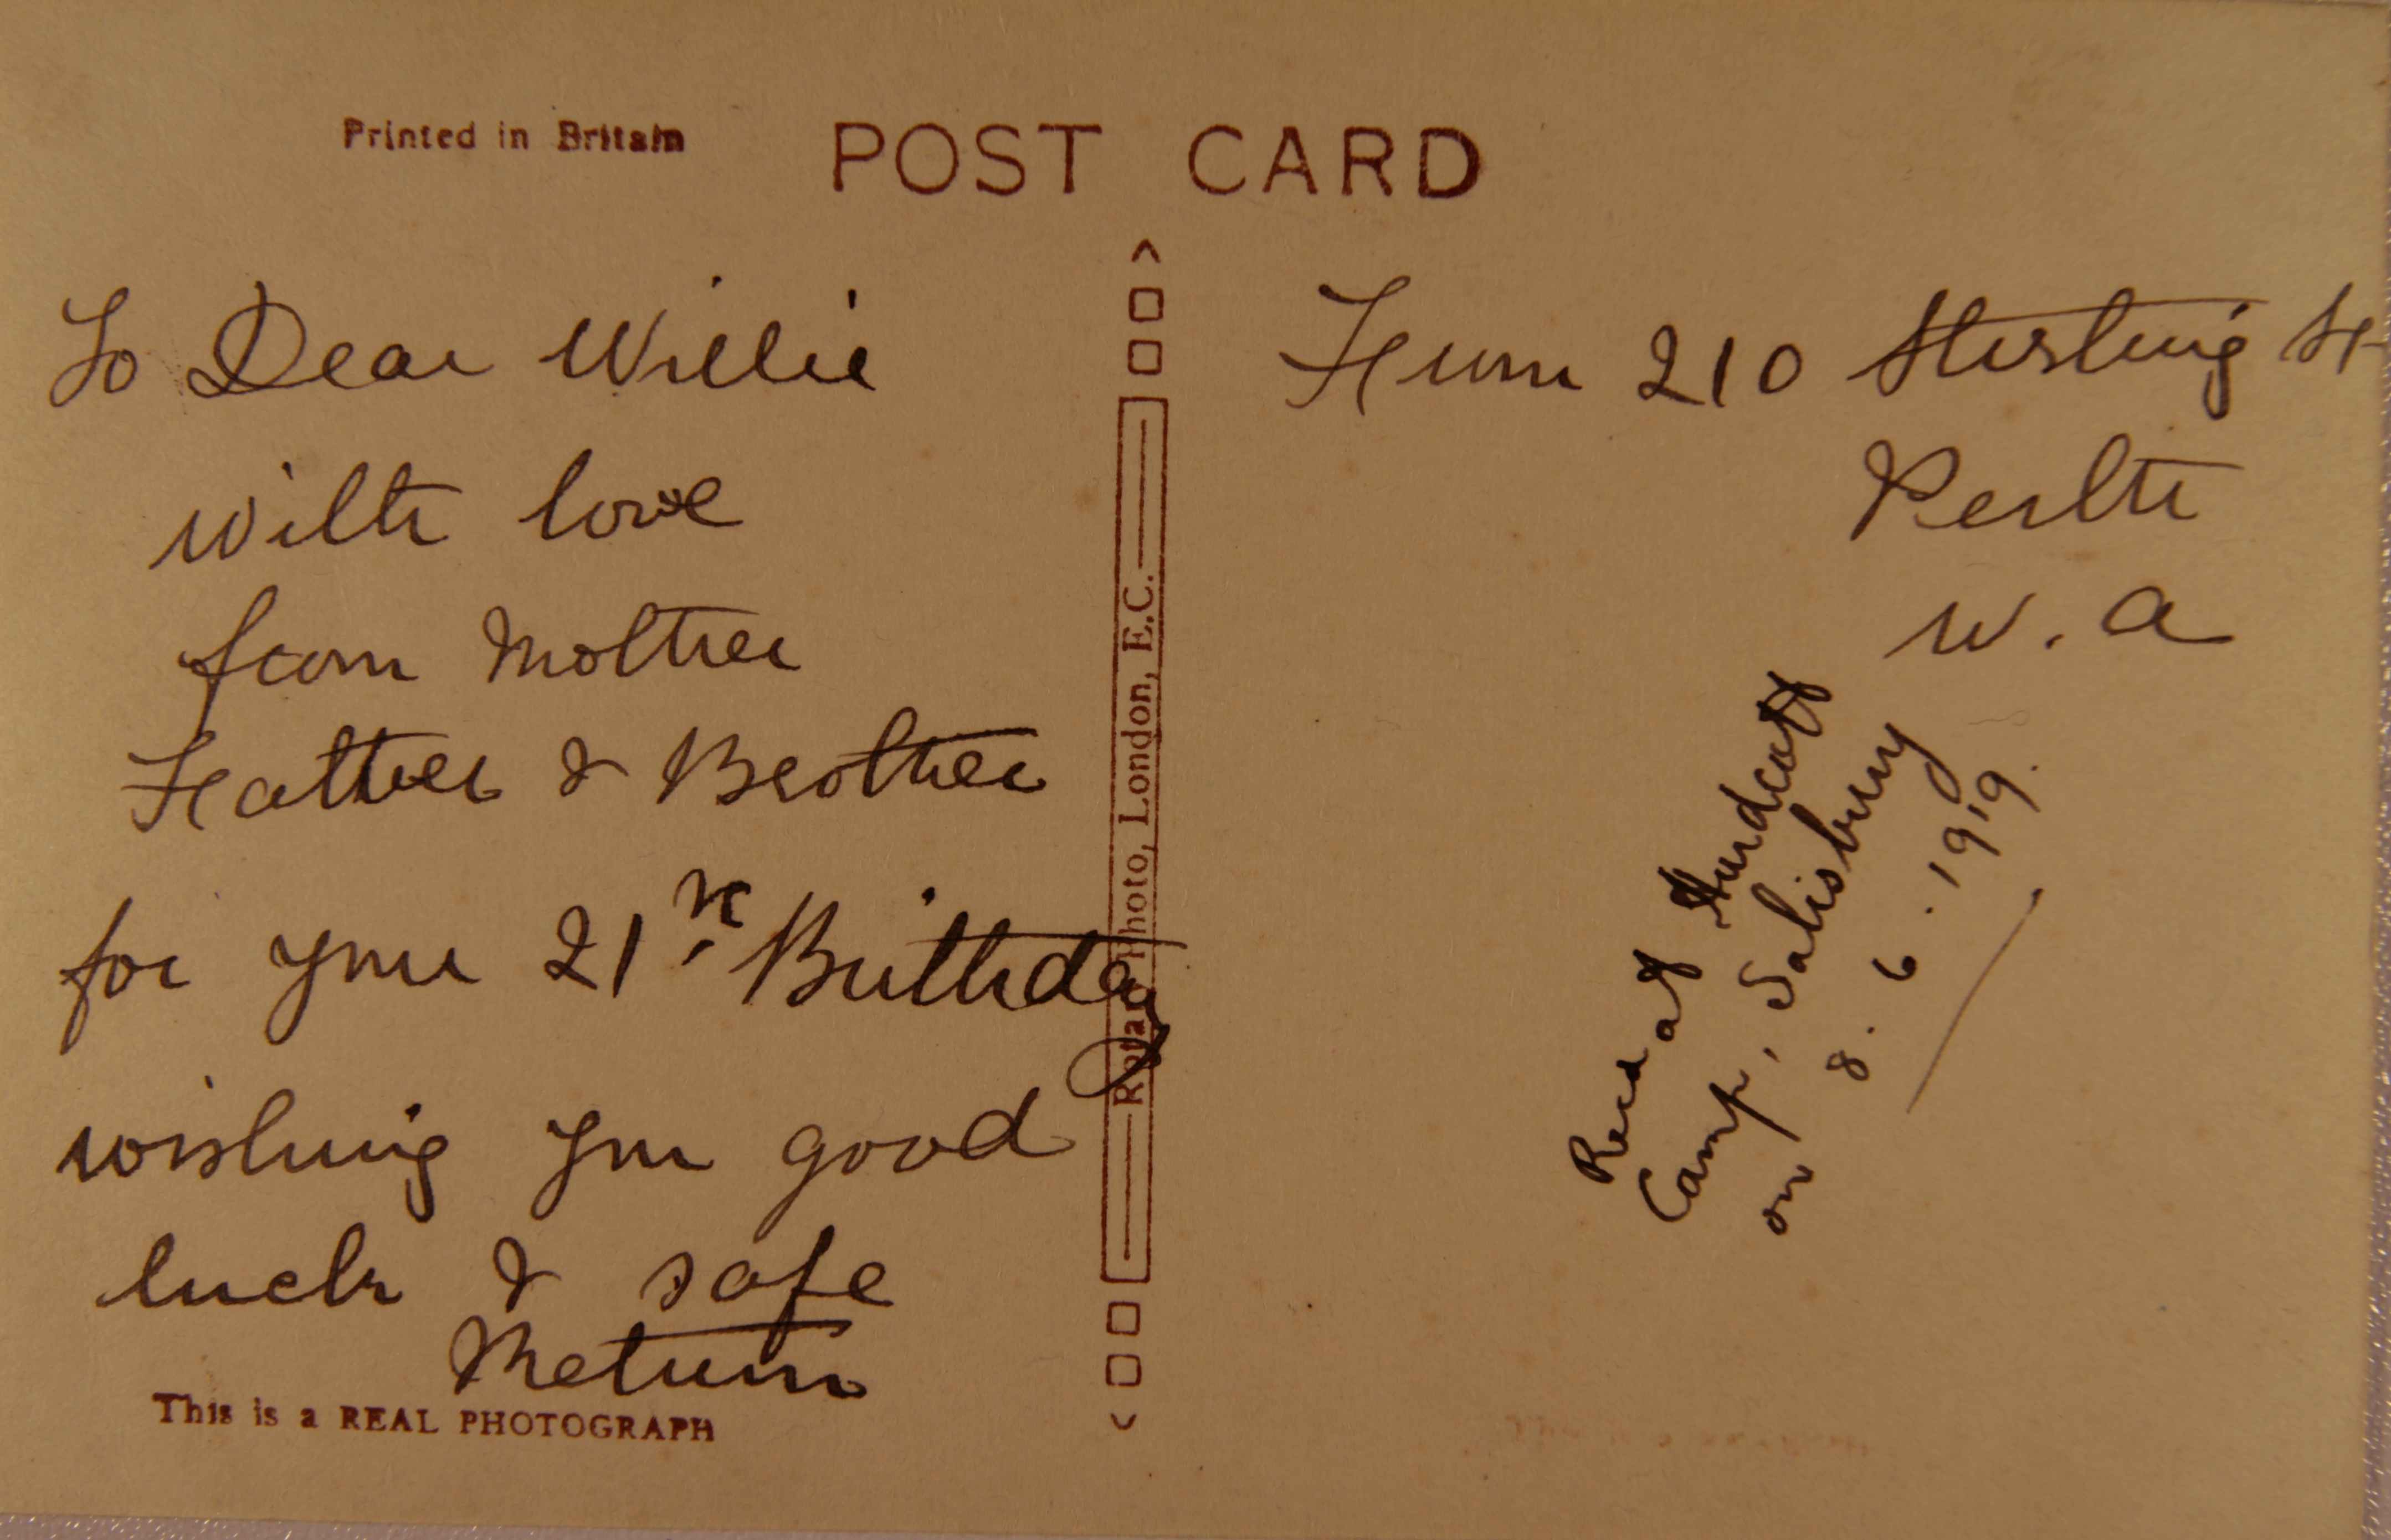 Printed in Britain
POST CARD
To Dear Willie
with love
from Mother
Father & Brother
for your 21st Birthday
wishing you good
luck & safe
Return
This is a REAL PHOTOGRAPH
Rotary Photo, London, E.C.
From 210 Stirling St
Perth
W. A
Recd at Hurdcott
Camp, Salisbury
on 8. 6. 1919.